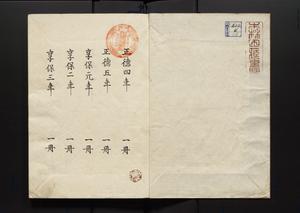 正德四年 一冊
正德五年 一冊
享保元年 一冊
享保二年 一冊
享保三年 一冊